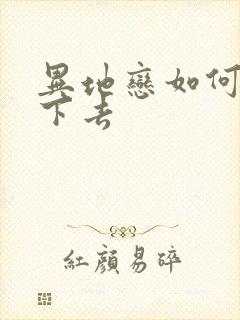 異地戀如何
下去
紅顏易碎